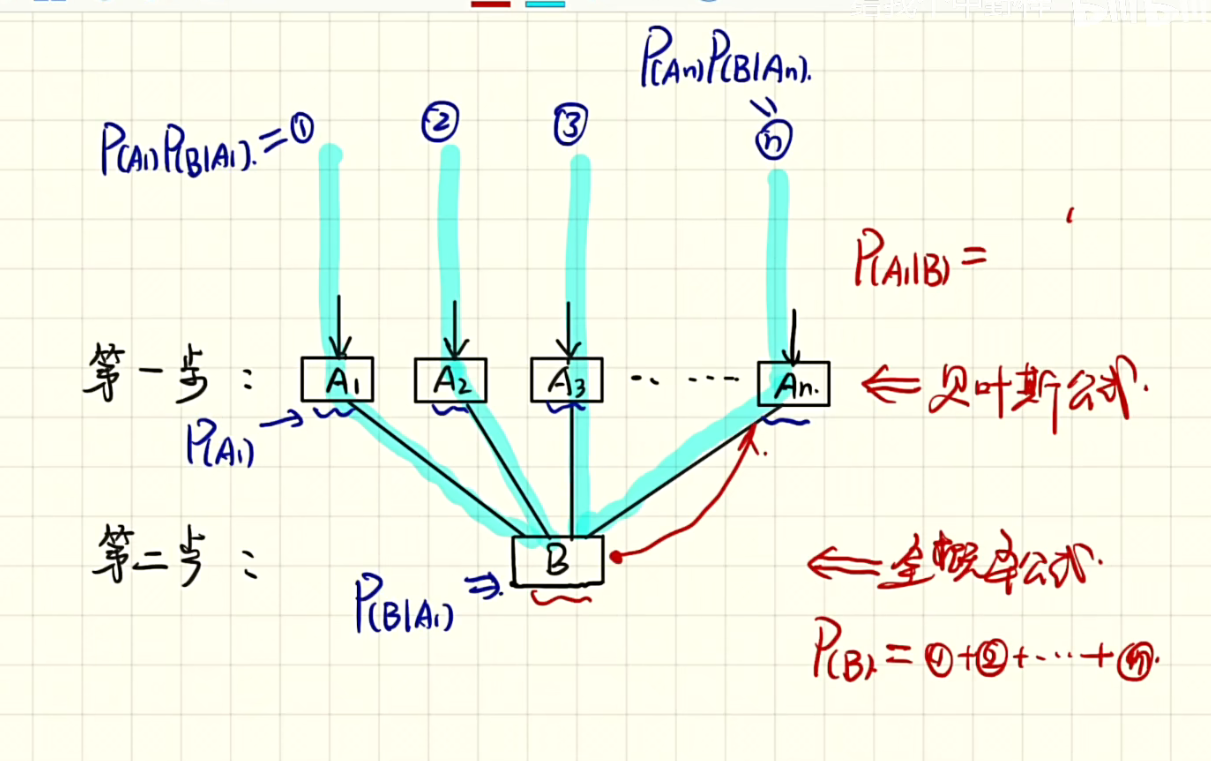 P(An)P(B|An).
P(A1)P(B|A1). = ① ② ③ ⓝ
P(A1|B) =
第一步： A1 A2 A3 ······ An. ⇐ 贝叶斯公式.
P(A1)
第二步： B ⇐ 全概率公式.
P(B|A1)
P(B) = ①+②+···+ⓝ.